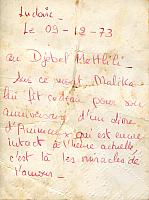 Ludovic _
Le 09-12-73
au Djebel
sur ce mont, Malika
lui fit cadeau pour son
anniversaire d'un
qui est encore
intact à l'heure actuelle,
c'est là les miracles de
l'amour _